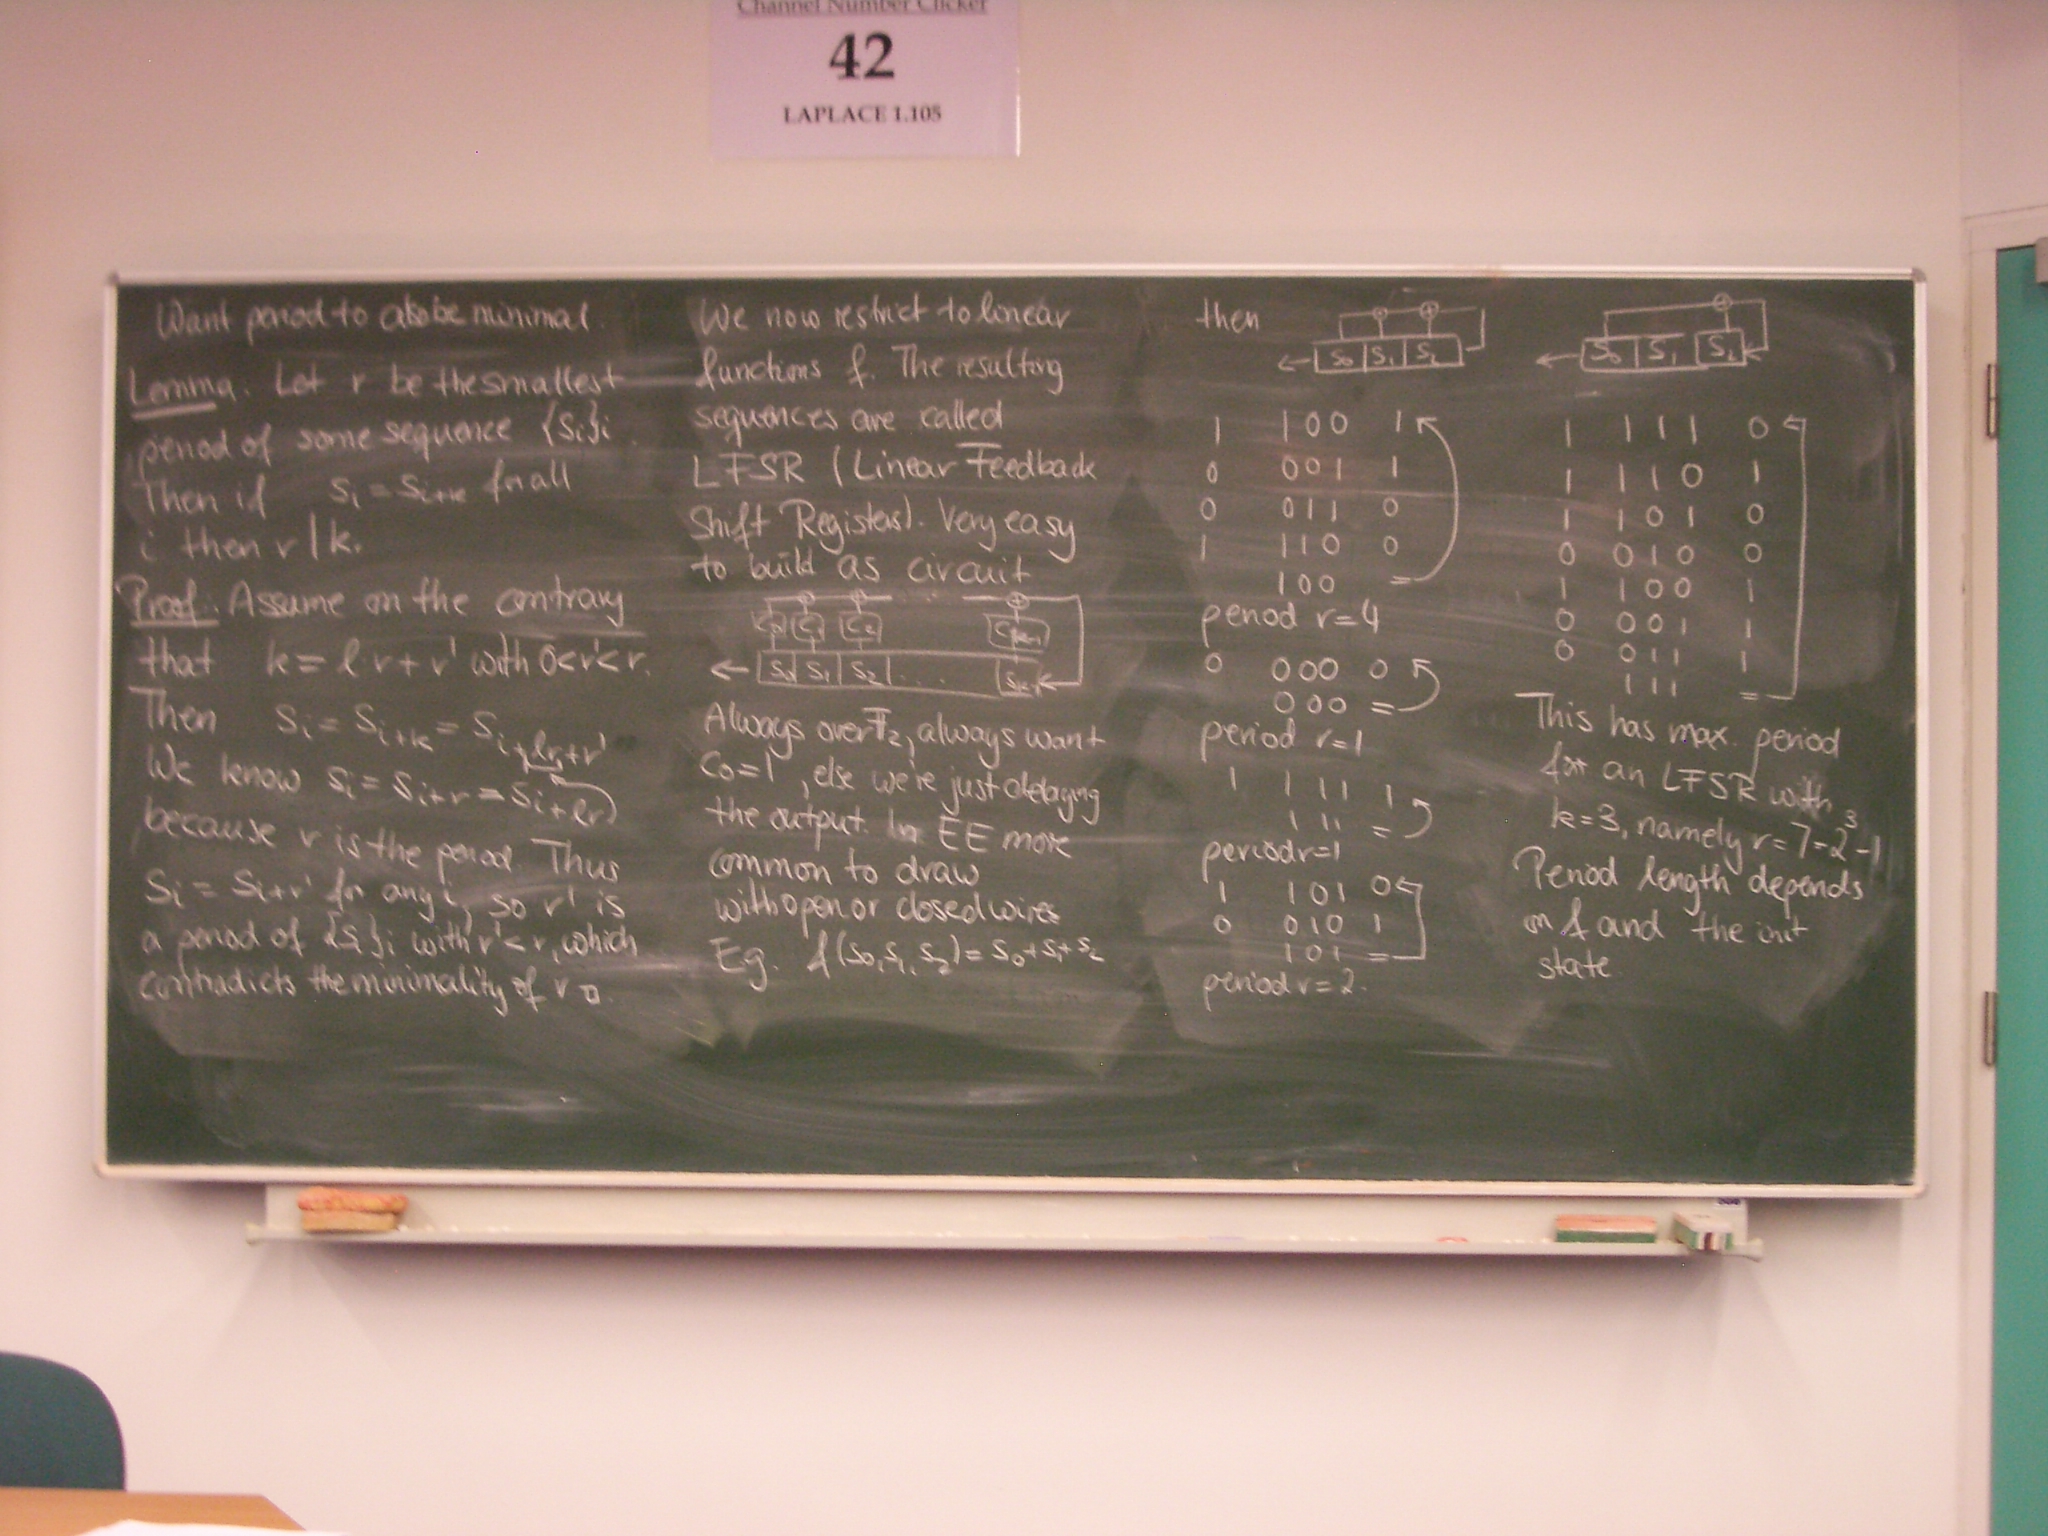 Channel Number Clicker
42
LAPLACE 1.105
Want period to be minimal.
Lemma. Let r be the smallest
period of some sequence {Si}i.
Then if Si = Si+k for all
i then r | k.
Proof. Assume on the contrary
that k = l r + r' with 0<r'<r.
Then Si = Si+k = Si+lr+r'
We know Si = Si+r = Si+lr
because r is the period. Thus
Si = Si+r' for any i, so r' is
a period of {Si}i with r'<r, which
contradicts the minimality of r □.
We now restrict to linear
functions f. The resulting
sequences are called
LFSR (Linear Feedback
Shift Registers). Very easy
to build as circuit
C0 C1 C2 Ck-1
S0 S1 S2 . . . . Sk-1
Always over F2, always want
C0=1, else we're just delaying
the output. In EE more
common to draw
with open or closed wires
Eg. f(S0,S1,S2)=S0+S1+S2
then
S0 S1 S2
1 100 1
0 001 1
0 011 0
1 110 0
100 =
period r=4
0 000 0
000 =
period r=1
1 111 1
111 =
period r=1
1 101 0
0 010 1
101 =
period r=2.
S0 S1 S2
1 111 0
1 110 1
1 101 0
0 010 0
1 100 1
0 001 1
0 011 1
111 =
This has max. period
for an LFSR with
k=3, namely r=7=2³-1
Period length depends
on f and the init
state.